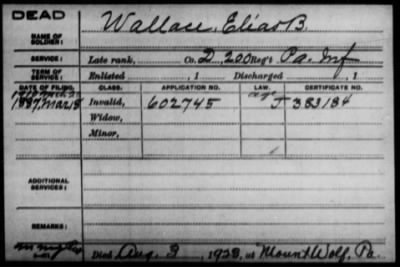 DEAD
NAME OF SOLDIER: Wallace, Elias B.
SERVICE: Late rank, Co. D, 200 Reg't Pa. Inf
TERM OF SERVICE: Enlisted , 1 Discharged , 1
DATE OF FILING. CLASS. APPLICATION NO. LAW. CERTIFICATE NO.
1887, Mar 8 Invalid, 602745 J 383184
Widow,
Minor,
ADDITIONAL SERVICES:
REMARKS:
Died Aug. 3, 1928, at Mount Wolf, Pa.